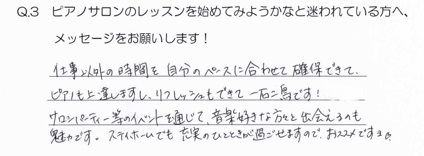 Q.3 ピアノサロンのレッスンを始めてみようかなと迷われている方へ、
メッセージをお願いします！
仕事以外の時間を自分のペースに合わせて確保できて、
ピアノも上達しますし、リフレッシュもできて一石二鳥です！
サロンパーティー等のイベントを通じて、音楽好きな方々と出会えるのも
魅力です。ステイホームでも充実のひとときが過ごせますので、おススメです♪